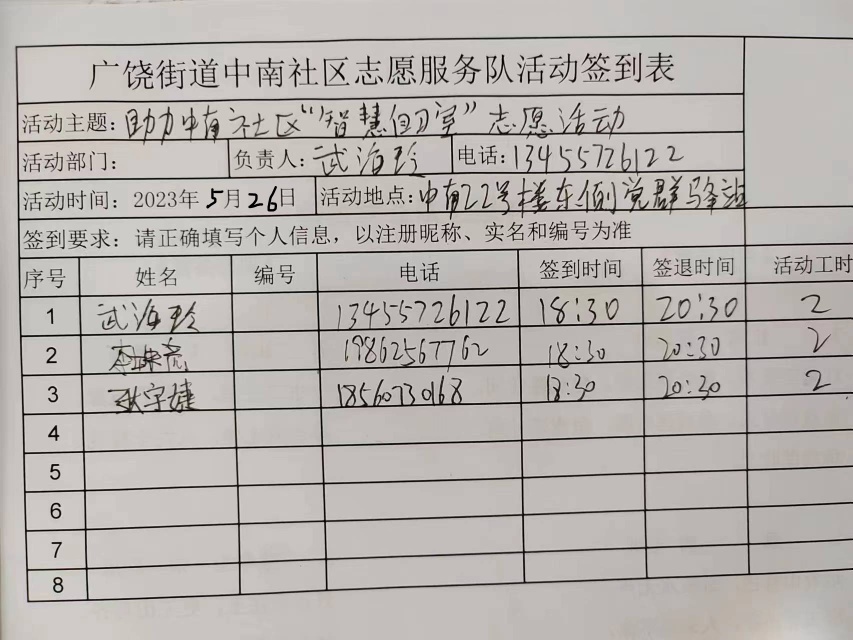 广饶街道中南社区志愿服务队活动签到表
活动主题：助力中南社区“智慧自习室”志愿活动
活动部门： 负责人：武海玲 电话：13455726122
活动时间：2023年5月26日 活动地点：中南22号楼东侧党群驿站
签到要求：请正确填写个人信息，以注册昵称、实名和编号为准
序号 姓名 编号 电话 签到时间 签退时间 活动工时
1 武海玲 13455726122 18:30 20:30 2
2 19862567762 18:30 20:30 2
3 耿宇婕 18560730168 18:30 20:30 2
4
5
6
7
8